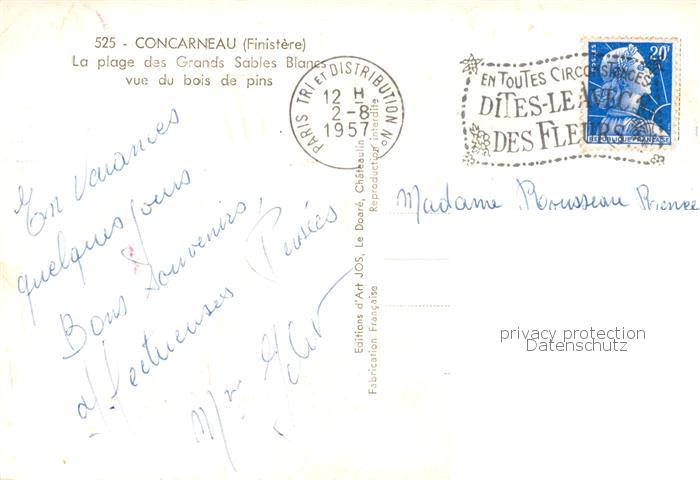 525 - CONCARNEAU (Finistère)
La plage des Grands Sables Blancs
vue du bois de pins
PARIS TRI ET DISTRIBUTION No
12 H
2-8
1957
EN TOUTES CIRCONSTANCES
DITES-LE AVEC
DES FLEURS
POSTES
20F
REPUBLIQUE FRANÇAISE
En vacances
quelques jours
Bons Souvenirs,
affectueuses Pensées
Mme
Editions d'Art JOS, Le Doaré, Châteaulin
Reproduction interdite
Fabrication Française
Madame Rousseau
privacy protection
Datenschutz